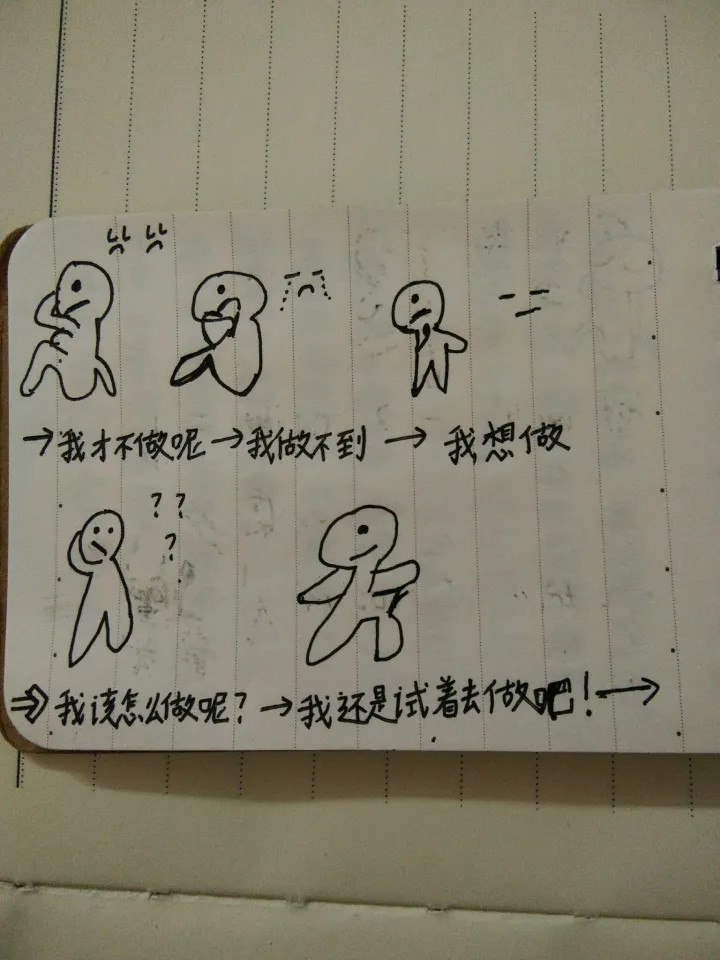 →我才不做呢→我做不到→我想做
? ?
?
⇒我该怎么做呢?→我还是试着去做吧!→